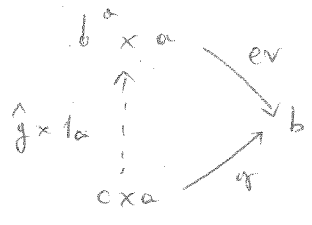 bᵃ × a
ev
ĝ × 1ₐ
b
c × a
g